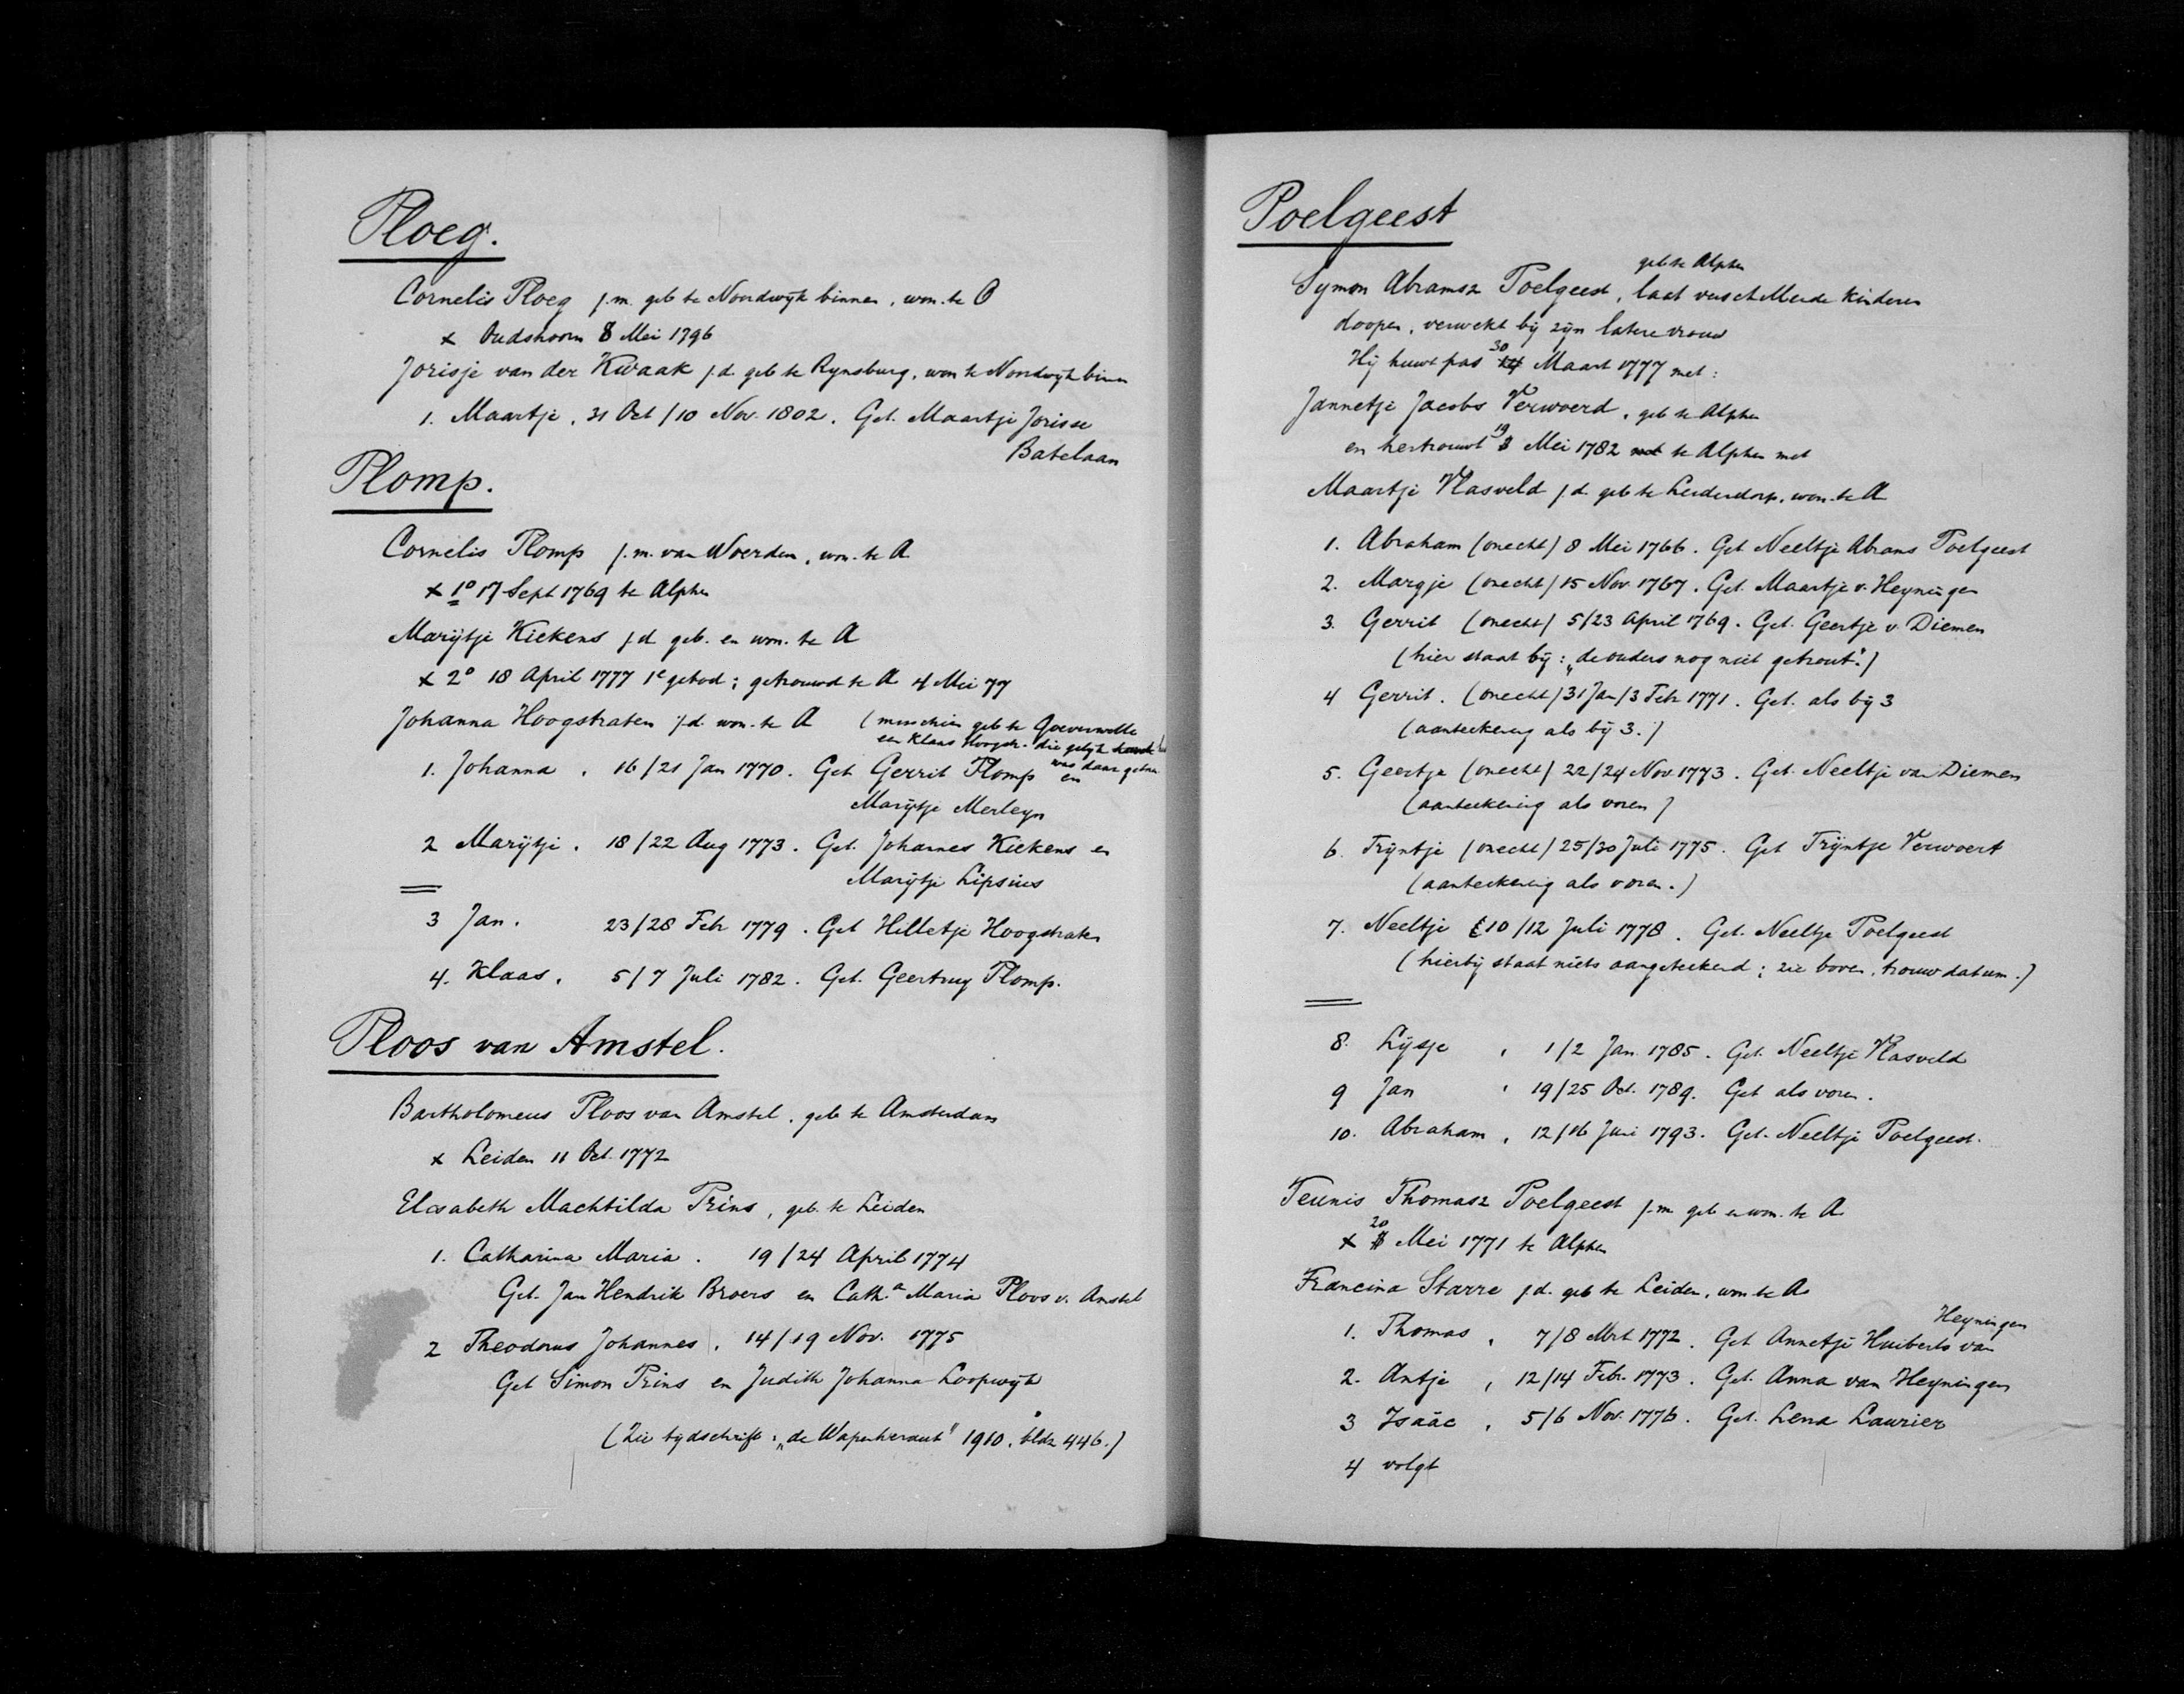 Ploeg.
Cornelis Ploeg j.m. geb te Noordwijk binnen, won. te O
x Oudshoorn 8 Mei 1796
Jorisje van der Kwaak j.d. geb te Rynsburg, won te Noordwijk binn
1. Maartje, 31 Oct / 10 Nov. 1802. Get. Maartje Jorisse
Batelaan
Plomp.
Cornelis Plomp j.m. van Woerden, won. te A
x 1° 17 Sept 1769 te Alphen
Marijtje Kiekens j.d. geb. en won. te A
x 2° 18 April 1777 1e gebod; getrouwd te A 4 Mei 77
Johanna Hoogstraten j.d. won. te A (misschien geb te Goeverwelle
een Klaas Hoogstr. die gelijk
was daar getrou
1. Johanna, 16/21 Jan 1770. Get Gerrit Plomp en
Marijtje Merleyn
2 Marijtje. 18/22 Aug 1773. Get. Johannes Kiekens en
Marijtje Lipsius
3 Jan. 23/28 Febr 1779. Get Hilletje Hoogstraten
4. Klaas, 5/7 Juli 1782. Get. Geertruy Plomp.
Ploos van Amstel.
Bartholomeus Ploos van Amstel, geb te Amsterdam
x Leiden 11 Oct. 1772
Elisabeth Machtilda Prins, geb. te Leiden
1. Catharina Maria. 19/24 April 1774
Get. Jan Hendrik Broers en Cath.a Maria Ploos v. Amstel
2 Theodorus Johannes, 14/19 Nov. 1775
Get Simon Prins en Judith Johanna Loopwijk
(Zie tijdschrift: „de Wapenheraut" 1910. bldz 446.)
Poelgeest
geb te Alphen
Symon Abramsz Poelgeest, laat verschillende kinderen
doopen, verwekt bij zijn latere vrouw
Hij huwt pas 30 Maart 1777 met:
Jannetje Jacobs Verwoerd, geb te Alphen
en hertrouwt 19 Mei 1782 te Alphen met
Maartje Vlasveld j.d. geb te Leiderdorp, won. te A
1. Abraham (onecht) 8 Mei 1766. Get Neeltje Abrams Poelgeest
2. Margje (onecht) 15 Nov. 1767. Get. Maartje v. Heyningen
3. Gerrit (onecht) 5/23 April 1769. Get. Geertje v. Diemen
(hier staat bij: „de ouders nog niet getrout".)
4 Gerrit. (onecht) 31 Jan/3 Febr 1771. Get. als bij 3
(aanteekening als bij 3.)
5. Geertje (onecht) 22/24 Nov. 1773. Get. Neeltje van Diemen
(aanteekening als voren)
6. Trijntje (onecht) 25/30 Juli 1775. Get Trijntje Verwoert
(aanteekening als voren.)
7. Neeltje 10/12 Juli 1778. Get. Neeltje Poelgeest
(hierbij staat niets aangeteekend; zie boven, trouwdatum.)
8. Lijsje, 1/2 Jan. 1785. Get. Neeltje Vlasveld
9 Jan, 19/25 Oct. 1789. Get als voren.
10. Abraham, 12/16 Juni 1793. Get. Neeltje Poelgeest.
Teunis Thomasz Poelgeest j.m. geb en won. te A.
x 20 Mei 1771 te Alphen
Francina Starre j.d. geb te Leiden, won te A
Heyningen
1. Thomas, 7/8 Mrt 1772. Get Annetje Huiberts van
2. Antje, 12/14 Febr. 1773. Get. Anna van Heyningen
3 Isaäc, 5/6 Nov. 1776. Get. Lena Laurier
4 volgt